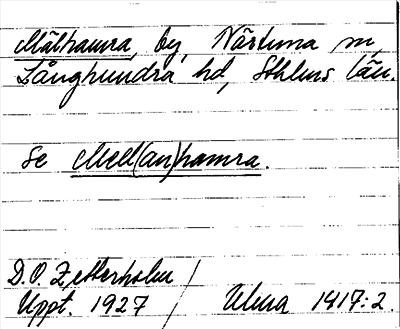 Mälhamra, by, Närtuna sn,
Långhundra hd, Sthlms län.
Se Mell(an)hamra.
D.O. Zetterholm /
Uppt. 1927 / Ulma 1417:2.